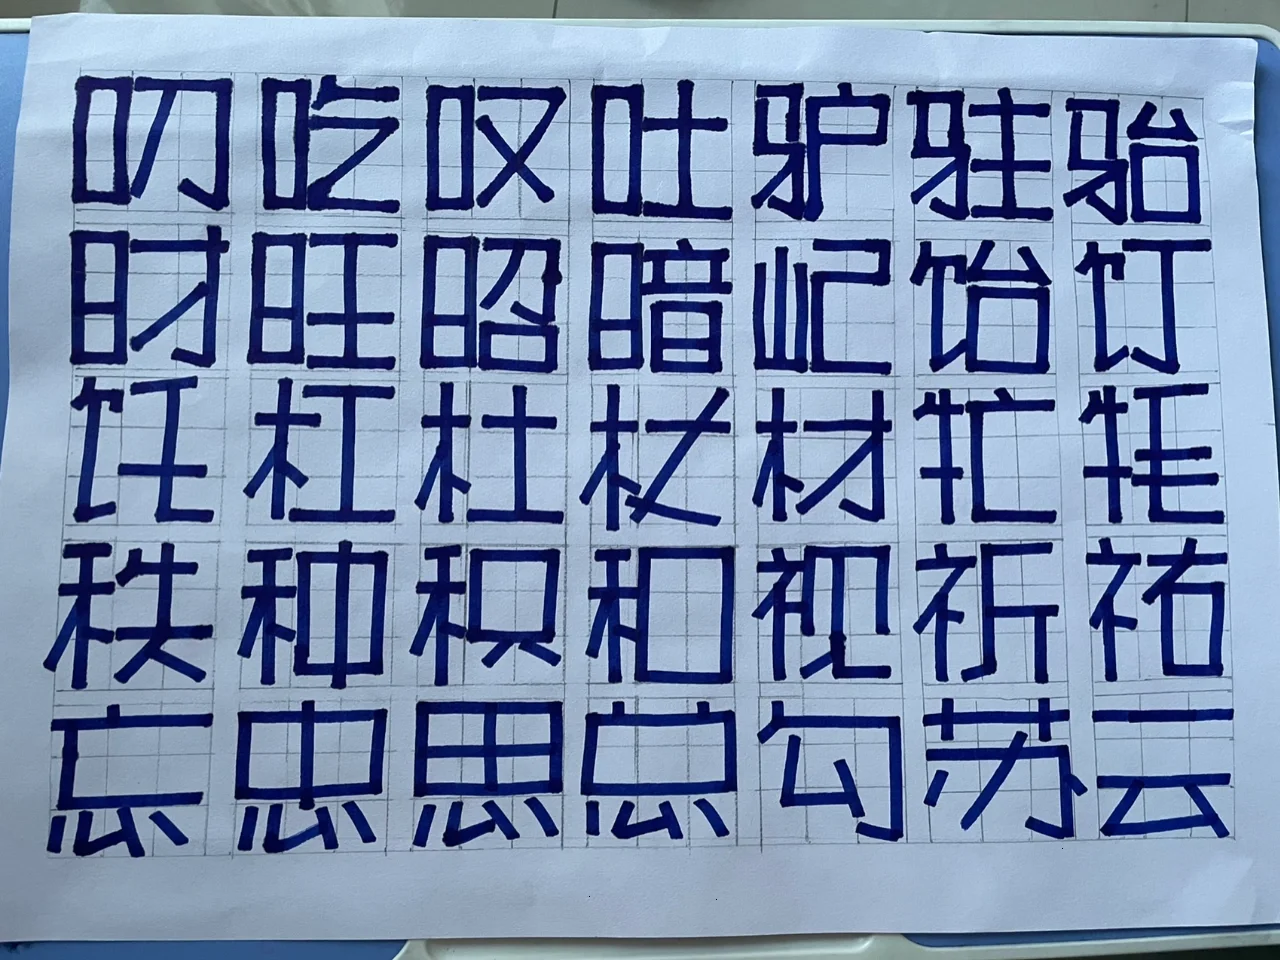 叨吃叹吐驴驻骀
旺昭暗屺饴饤
饪杠杜杖材牤牦
秩种积和视祈祐
忘忠思总勾苏云